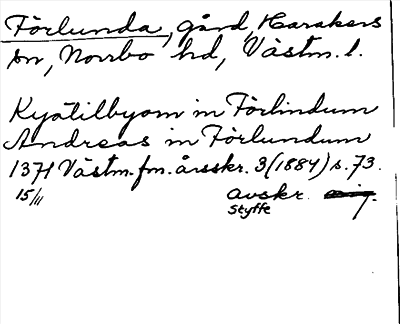 Förlunda, gård, Harakers
sn, Norrbo hd, Västm. l.
Kyätilbyom in Förlindum
Andreas in Förlundum
1371 Västm. fm. årsskr. 3 (1884) s. 73.
15/11 avskr.
Styffe